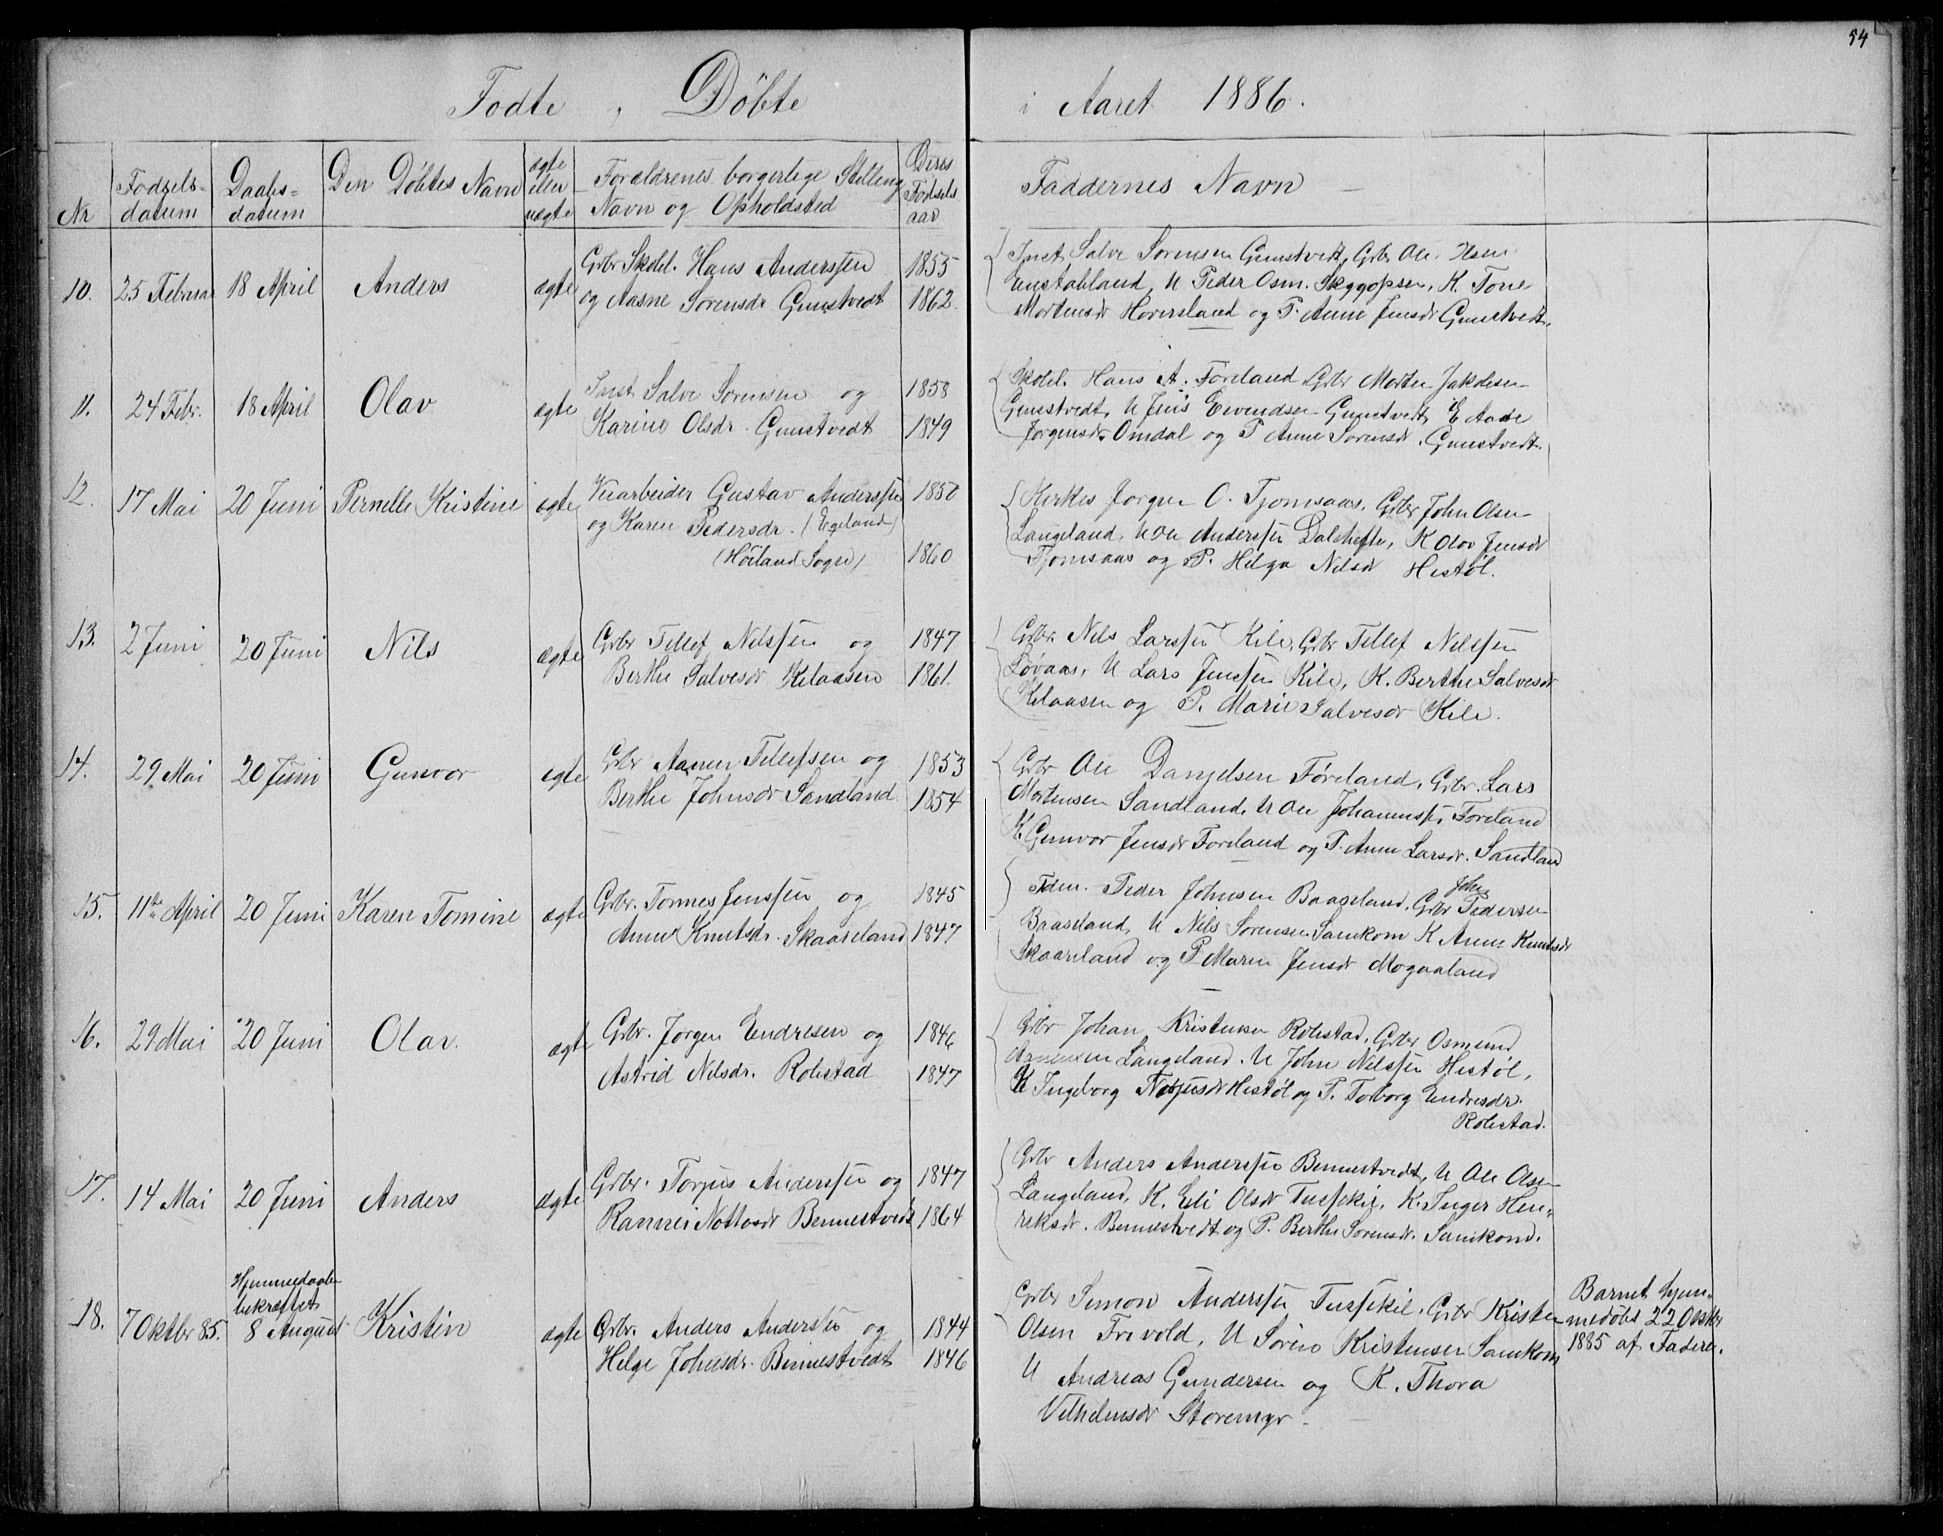 54
Fødte , Døbte i Aaret 1886.
Nr
Fødsels-
datum
Daabs-
datum
Den Døbtes Navn
ægte
eller
uægte
Forældrenes borgerlige Stilling
Navn og Opholdsted
Deres
Fødsels
aar
Faddernes Navn
10. 25 Februar 18 April Anders ægte
Grbr Skdel. Hans Anderssen 1855
og Aasne Sørensdr Gumstvedt 1862.
Inst. Salve Sørensen Gumstvedt, Grbr Ole Olsen
U Peder Osm. K. Tone
Mortensdr Hoversland og P. Anne Jensdr Gumstvedt.
11. 24 Febr. 18 April Olav ægte
Inst Salve Sørensen og 1858
Karine Olsdr. Gumstvedt 1849
Skdel. Hans A. Føreland, Grbr Morten Jakobsen
Gumstvedt, U Jens Eivendsen Gumstvedt, E Aade
Jørgensdr Omdal og P Anne Sørensdr. Gumstvedt.
12. 17 Mai 20 Juni Pernelle Kristine ægte
Veiarbeider Gustav Anderssen 1850
og Karen Pedersdr. (Egeland)
(Höiland Sogn) 1860
Kirkes Jørgen O. Tjomsaas, Grbr John Olsen
Langeland, U Ole Anderssen Dalehefte, K Olov Jensdr
Tjomsaas og P. Helga Nilsdr Hestöl.
13. 2 Juni 20 Juni Nils ægte
Grbr Tellef Nilssen og 1847
Berthe Salvesdr Kilaasen 1861.
Grbr. Nils Larssen Kile, Grbr Tellef Nilssen
Løvaas, U Lars Jenssen Kile, K. Berthe Salvesdr
Kilaasen og P. Marie Salvesdr Kile.
14. 29 Mai 20 Juni Gunvor egte
Grbr Aanen Tellefsen og 1853
Berthe Johnsdr Sandland 1854
Grbr Ole Danjelsen Føreland, Grbr. Lars
Mortensen Sandland, U Ole Johannessen Føreland
K. Gunvor Jensdr Føreland og P. Anne Larsdr. Sandland
15. 11te April 20 Juni Karen Tomine ægte
Grbr. Tønnes Jenssen og 1845
Anne Knutsdr. Skaareland 1847
Fdm. Peder Johnsen Baaseland, Grbr John Pedersen
Baaseland, U Nils Sørensen Samkom K Anne Knutsdr
Skaareland og P Maren Jensdr Mogaaland
16. 29 Mai 20 Juni Olav. ægte
Grbr. Jørgen Endresen og 1846
Astrid Nilsdr. Robstad 1847
Grbr Johan Kristensen Robstad, Grbr Osmund
Langeland. U John Nilssen Hestöl,
K Ingeborg Notjusdr Hestöl og P. Torborg Endresdr.
Robstad.
17. 14 Mai 20 Juni Anders ægte
Grbr. Torjus Anderssen og 1847
Rannei Nottosdr Bennestvedt 1864
Grbr Anders Anderssen Bennestvedt, U Ole Olsen
Langeland, K. Eli Olsdr Tuftekil, K. Inger Hen-
reksdr. Bennestvedt og P. Berthe Sørensdr. Samkom.
Hjemmedaab
bekræftet
18. 7 Oktbr 85. 8 August Kristin ægte
Grbr. Anders Anderssen og 1844
Helge Johnsdr. Bennestvedt 1846
Grbr Simon Anderssen Tuftekil, Grbr Kristen
Olsen Trivold, U Søren Kristensen Samkom
U Andreas Gundersen og K. Thora
Vilhelmsdr Storemyr.
Barnet hjem-
medøbt 22 Oktbr
1885 af Faderen.